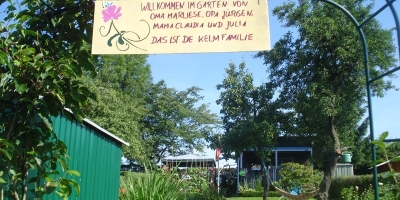 WILLKOMMEN IM GARTEN VON
OMA MARLIESE, OPA JÜRGEN,
MAMA CLAUDIA UND JULIA
DAS IST DE KELM FAMILIE